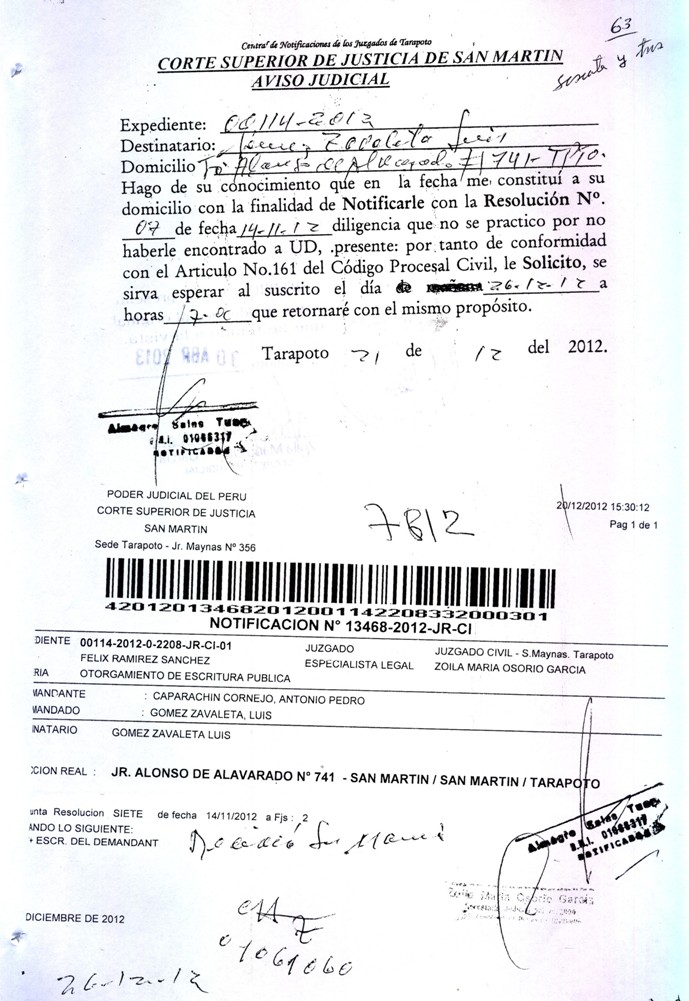 63
sesenta y tres
Central de Notificaciones de los Juzgados de Tarapoto
CORTE SUPERIOR DE JUSTICIA DE SAN MARTIN
AVISO JUDICIAL
Expediente: 00114-2012
Destinatario: Gómez Zavaleta Luis
Domicilio Jr. Alonso de Alvarado # 741- TPTO.
Hago de su conocimiento que en la fecha me constituí a su
domicilio con la finalidad de Notificarle con la Resolución Nº.
07 de fecha 14-11-12 diligencia que no se practico por no
haberle encontrado a UD, .presente: por tanto de conformidad
con el Articulo No.161 del Código Procesal Civil, le Solicito, se
sirva esperar al suscrito el día de mañana 26-12-12 a
horas 17-00 que retornaré con el mismo propósito.
Tarapoto 21 de 12 del 2012.
Almagro Salas
D.N.I. 01066317
NOTIFICADOR
PODER JUDICIAL DEL PERU
CORTE SUPERIOR DE JUSTICIA
SAN MARTIN
Sede Tarapoto - Jr. Maynas Nº 356
7812
20/12/2012 15:30:12
Pag 1 de 1
420120134682012001142208332000301
NOTIFICACION N° 13468-2012-JR-CI
DIENTE 00114-2012-0-2208-JR-CI-01 JUZGADO JUZGADO CIVIL - S.Maynas. Tarapoto
FELIX RAMIREZ SANCHEZ ESPECIALISTA LEGAL ZOILA MARIA OSORIO GARCIA
RIA OTORGAMIENTO DE ESCRITURA PUBLICA
MANDANTE : CAPARACHIN CORNEJO, ANTONIO PEDRO
MANDADO : GOMEZ ZAVALETA, LUIS
NATARIO GOMEZ ZAVALETA LUIS
CCION REAL : JR. ALONSO DE ALAVARADO Nº 741 - SAN MARTIN / SAN MARTIN / TARAPOTO
unta Resolucion SIETE de fecha 14/11/2012 a Fjs : 2
ANDO LO SIGUIENTE:
+ ESCR. DEL DEMANDANT
Recibió su Mamá
Almagro Salas
D.N.I. 01066317
NOTIFICADOR
Zoila Maria Osorio Garcia
DICIEMBRE DE 2012
01061060
26-12-12